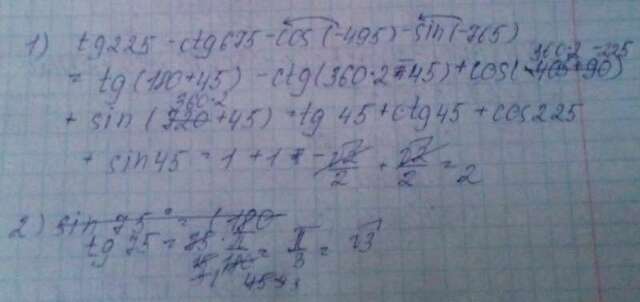 1) tg225 - ctg675 - cos(-495) - sin(-765)
= tg(180+45) - ctg(360·2-45) + cos(360·2-225)
+ sin(360·2+45) = tg 45 + ctg45 + cos225
+ sin45 = 1 + 1 - √2/2 + √2/2 = 2
2) sin 75° =
tg 75 = π/3 = √3